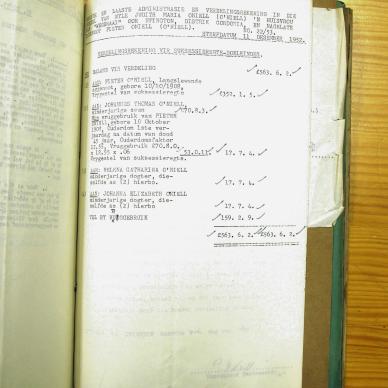 EERSTE EN LAASTE ADMINISTRASIE EN VERDELINGSREKENING IN DIE
VAN WYLE JUDITH MARIA ONIELL (O'NIELL) 'N HUISVROU
OOK NYENGTON, DISTRIK ODENDORIA, EN NAGELATE
PIETER ONIELL (O'NIELL). NO. 22/53.
STERFDATUM 11 DESEMBER 1952.
VERDELINGSREKENING VIR SUKSESSIEREGTE-DOELEINDES.
BALANS VIR VERDELING £563. 6. 2.
AAN: PIETER O'NIELL, langslewende
eggenoot, gebore 10/10/1908,
Vrygestel van suksessieregte £352. 1. 5.
AAN: JOHANNES THOMAS O'NIELL,
minderjarige seun £70.8.3.
Min vruggebruik van PIETER
ONIELL, gebore 10 Oktober
1908, Ouderdom 1ste ver-
jaardag na datum van dood
45 jaar, Ouderdomsfaktor
12.95, Vruggebruik £70.8.0.
x 12.95 x .06 53.0.11 17. 7. 4.
Vrygestel van suksessieregte
AAN: HELENA CATHARINA O'NIELL
minderjarige dogter, die-
selfde as (2) hierbo 17. 7. 4.
AAN: JOHANNA ELIZABETH ONIELL
minderjarige dogter, die-
selfde as (2) hierbo 17. 7. 4.
VRUGGEBRUIK 159. 2. 9.
£563. 6. 2. £563. 6. 2.